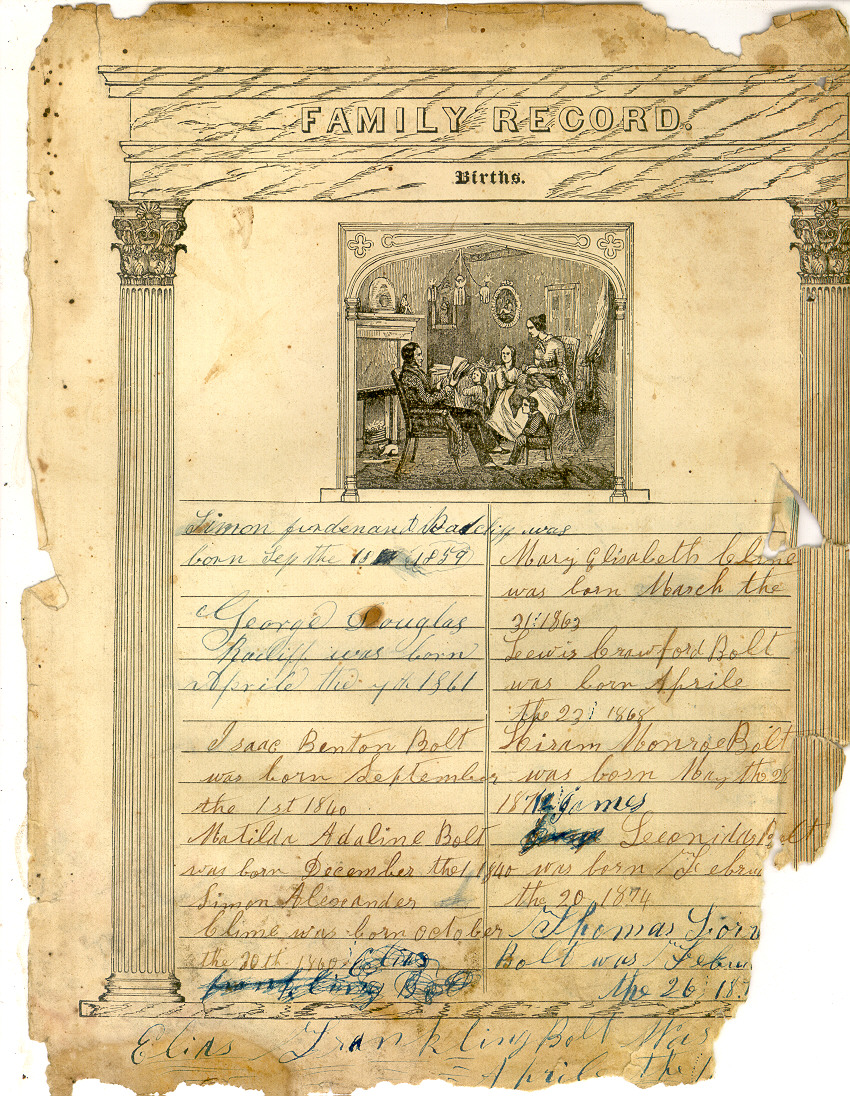 FAMILY RECORD.
Births.
Simon furdenant Radcliff was
born Sep the 1859
George Douglas
Racliff was born
Aprile the 7th 1861
Isaac Benton Bolt
was born September
the 1st 1840
Matilda Adaline Bolt
was born December the 1 1840
Simon Alexander
Cline was born october
the 30th 1860 Elias
Mary Elisabeth Cline
was born March the
31: 1863
Lewis Crawford Bolt
was born Aprile
the 23: 1868
Hiram Monroe Bolt
was born May the 28
187 James
Leonidas Bolt
was born Febru
the 20 1874
Thomas
Bolt was Febu
the 26 18
Elias Frankling Bolt Was
Aprile the